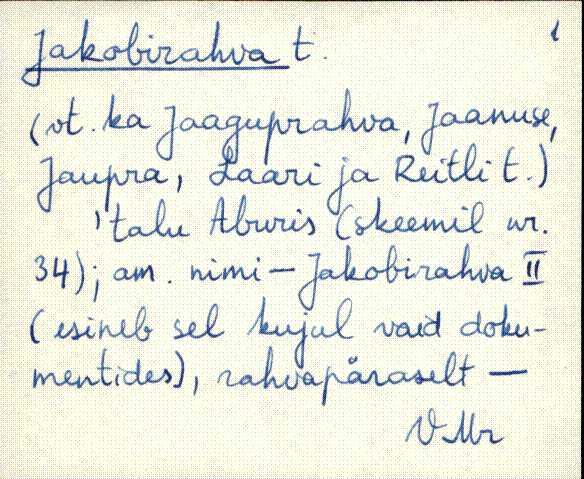 Jakobirahva t. 1
(vt. ka Jaaguprahva, Jaanuse,
Jaupra, Laari ja Reitli t.)
'talu Aburis (skeemil nr.
34); am. nimi – Jakobirahva II
(esineb sel kujul vaid doku-
mentides), rahvapäraselt –
VMr